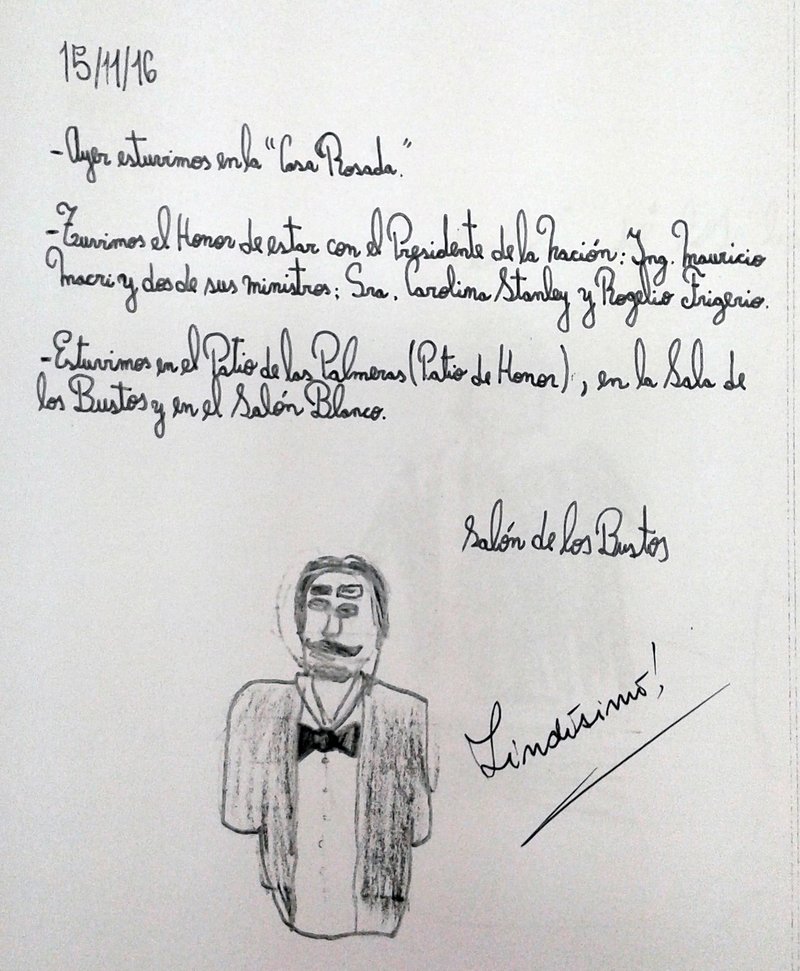 15/11/16
-Ayer estuvimos en la "Casa Rosada."
-Tuvimos el Honor de estar con el Presidente de la Nación: Ing. Mauricio
Macri y dos de sus ministros: Sra. Carolina Stanley y Rogelio Frigerio.
-Estuvimos en el Patio de las Palmeras (Patio de Honor), en la Sala de
los Bustos y en el Salón Blanco.
Salón de los Bustos
Lindísimo!